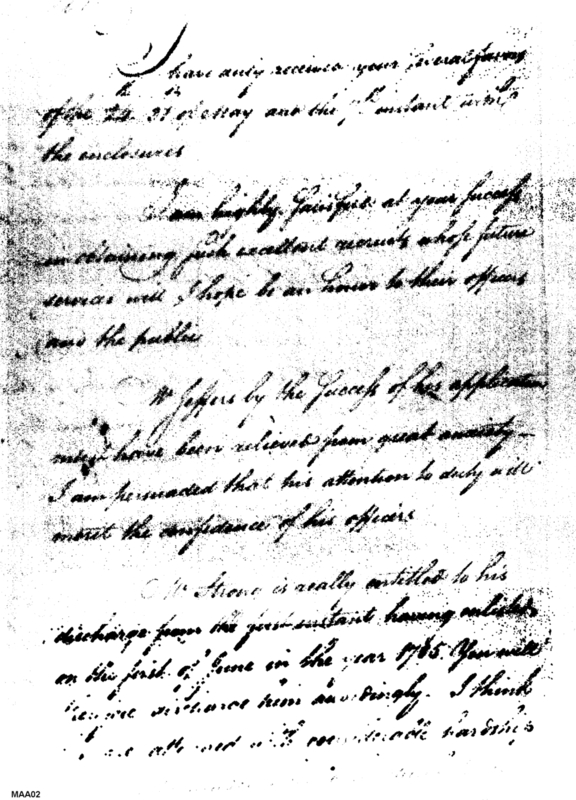 I have only received your several favors
of the 24 31 of May and the 7th instant with
the enclosures
I am highly satisfied at your success
in obtaining such excellent recruits whose future
services will I hope be an honor to their officers
and the public
Mr Jeffers by the success of his application
must have been relieved from great anxiety—
I am persuaded that his attention to duty will
merit the confidence of his officers
Mr Strong is really entitled to his
discharge from the first instant having enlisted
on the first of June in the year 1785. You will
discharge him accordingly. I think
attended with considerable hardship
MAA02